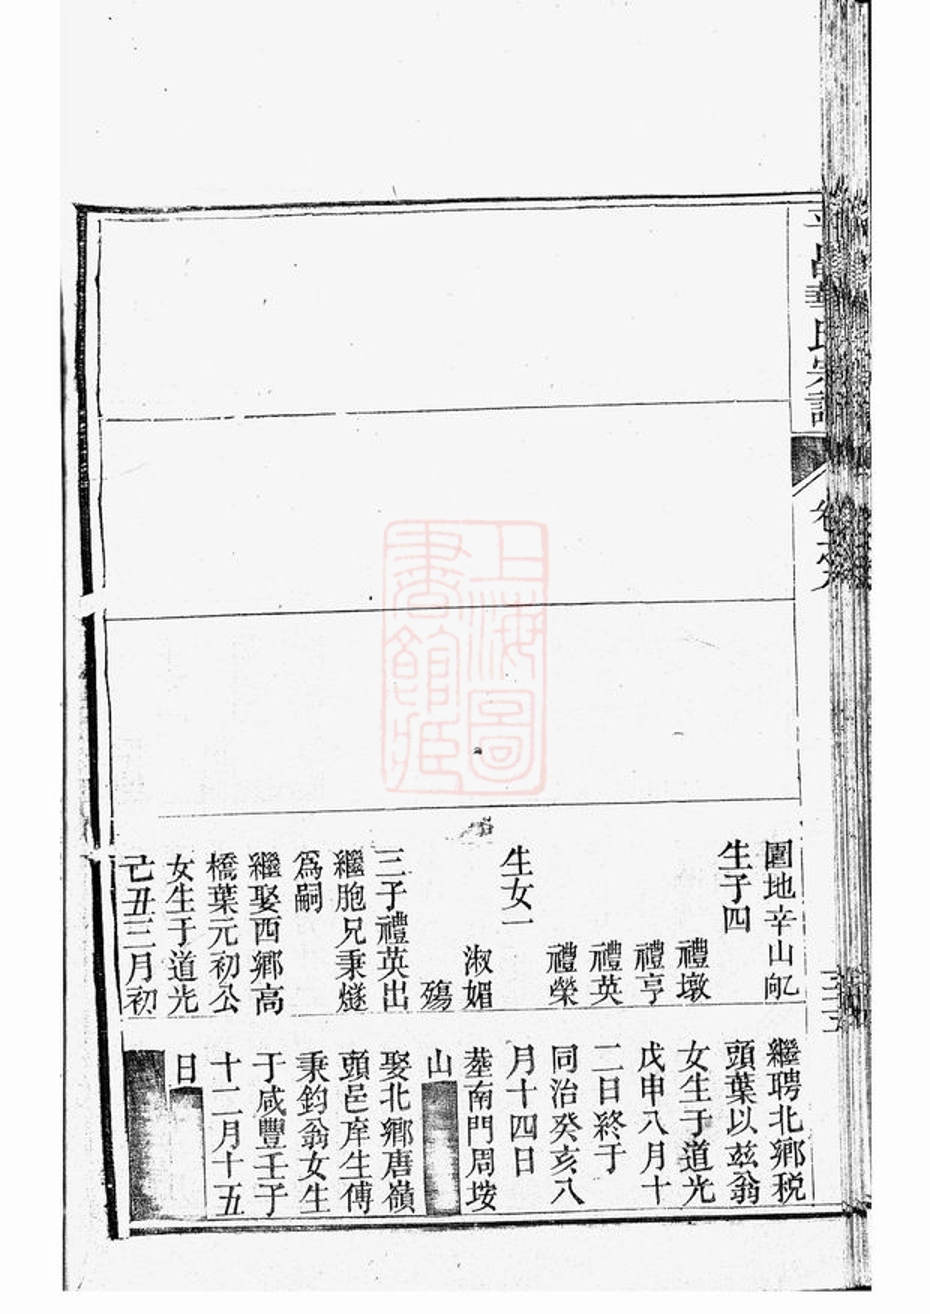 昌華氏宗譜
卷之六
圍地辛山
生子四
禮墩
禮亨
禮英
禮榮
生女一
淑媚
殤
三子禮英出
繼胞兄秉燧
爲嗣
繼娶西鄉高
橋葉元初公
女生于道光
己丑三月初
繼聘北鄉税
頭葉以兹翁
女生于道光
戊申八月十
二日終于
同治癸亥八
月十四日
塟南門周垵
山
娶北鄉唐嶺
頭邑庠生傅
秉鈞翁女生
于咸豐壬子
十二月十五
日
上海圖
書館藏